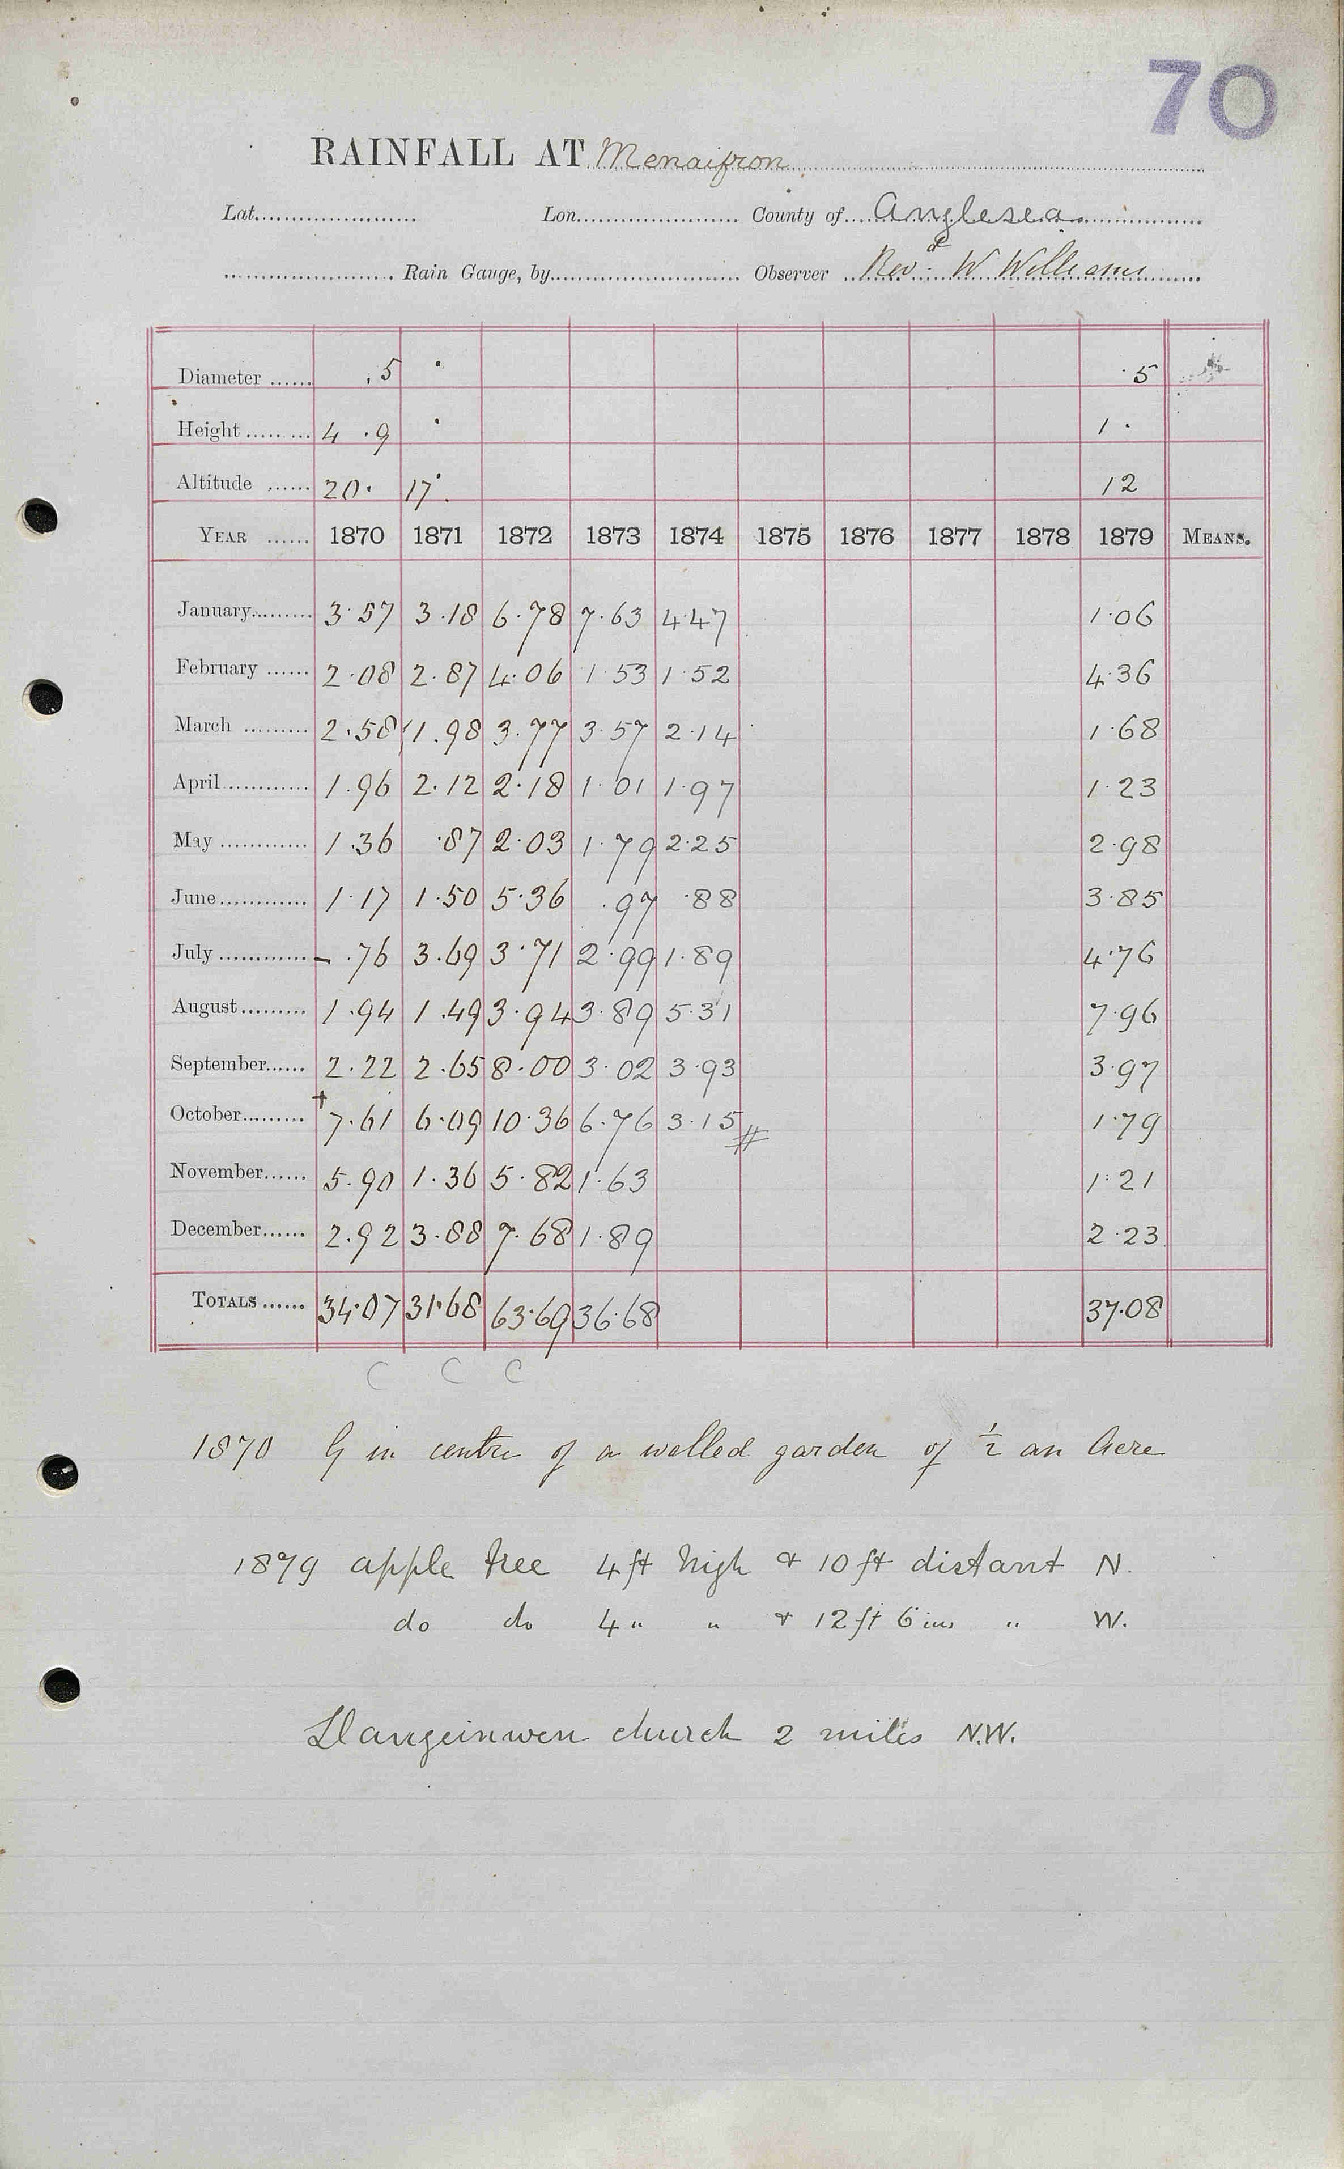 70
RAINFALL AT Menaifron
Lat. Lon. County of Anglesea
Rain Gauge, by Observer Revd. W Williams
Diameter ...... .5 · · 5
Height ......... 4 .9 · 1 ·
Altitude ...... 20. 17. 12
YEAR ...... 1870 1871 1872 1873 1874 1875 1876 1877 1878 1879 MEANS.
January......... 3·57 3·18 6·78 7·63 4·47 1·06
February ...... 2·08 2·87 4·06 1·53 1·52 4·36
March ......... 2·58 1·98 3·77 3·57 2·14 1·68
April............ 1·96 2·12 2·18 1·01 1·97 1·23
May ............ 1·36 ·87 2·03 1·79 2·25 2·98
June............ 1·17 1·50 5·36 ·97 ·88 3·85
July ............ - ·76 3·69 3·71 2·99 1·89 4·76
August......... 1·94 1·49 3·94 3·89 5·31 7·96
September...... 2·22 2·65 8·00 3·02 3·93 3·97
October......... + 7·61 6·09 10·36 6·76 3·15 # 1·79
November...... 5·90 1·36 5·82 1·63 1·21
December...... 2·92 3·88 7·68 1·89 2·23
TOTALS ...... 34·07 31·68 63·69 36·68 37·08
C C C
1870 G in centre of a walled garden of ½ an Acre
1879 apple tree 4 ft high & 10 ft distant N.
do do 4 " " & 12 ft 6 ins " W.
Llangeinwen church 2 miles N.W.